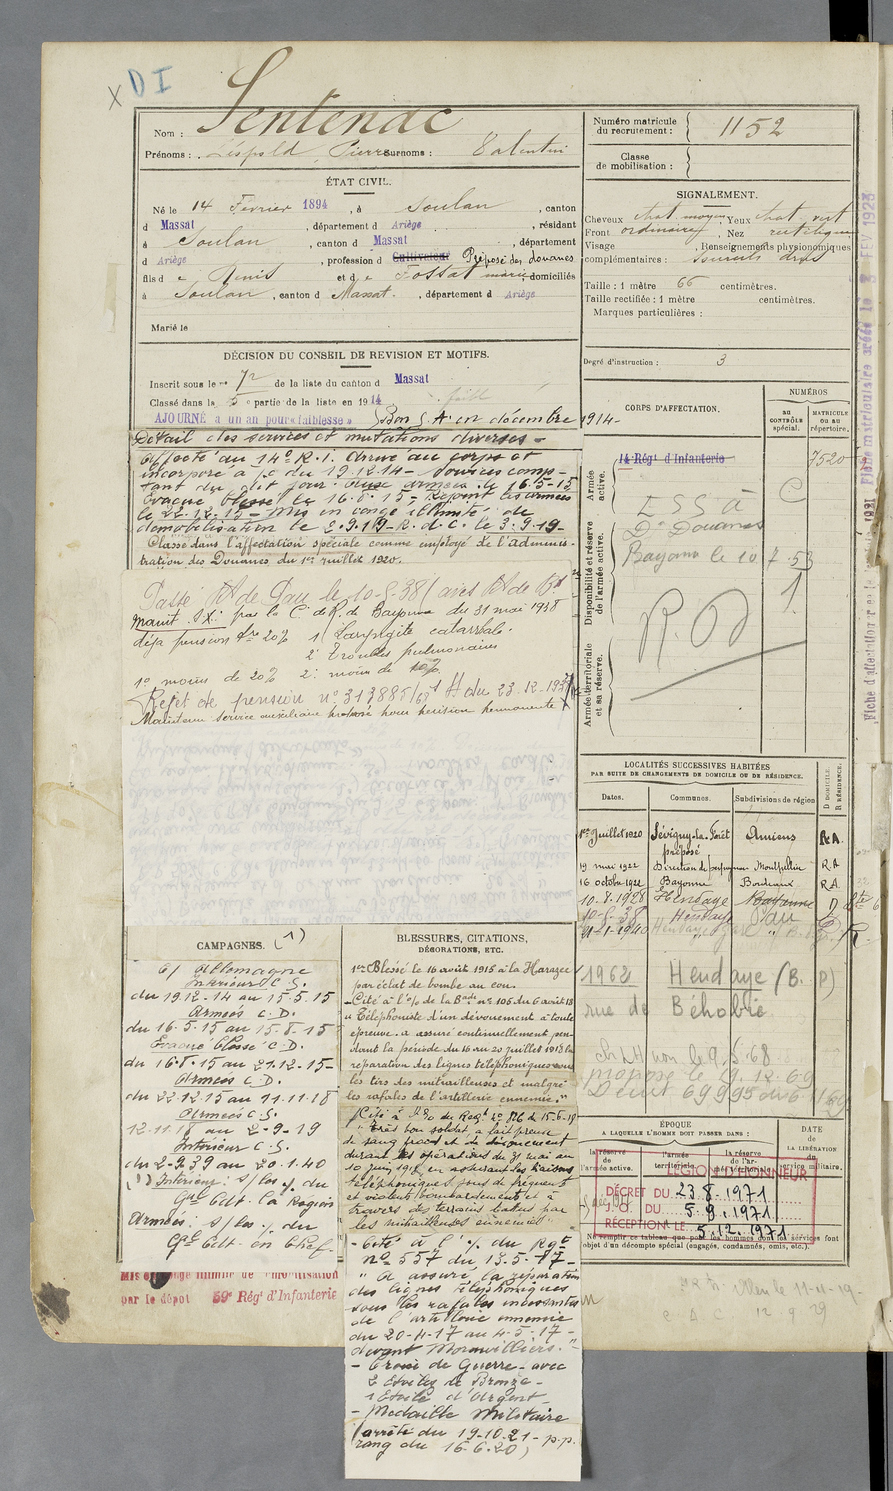 X D I
Nom : Sentenac
Prénoms : Léopold, Pierre Surnoms : Valentin
Numéro matricule
du recrutement : 1152
Classe
de mobilisation :
ÉTAT CIVIL.
Né le 14 Février 1894, à Soulan, canton
d Massat, département d Ariège, résidant
à Soulan, canton d Massat, département
d Ariège, profession d Cultivateur Préposé des douanes
fils d e Denis et d e Fossat Marie, domiciliés
à Soulan, canton d Massat, département d Ariège
Marié le
SIGNALEMENT.
Cheveux chat. moyen, Yeux chat. vert
Front ordinaire, Nez rectiligne
Visage , Renseignements physionomiques
complémentaires : Sourcils droits
Taille : 1 mètre 66 centimètres.
Taille rectifiée : 1 mètre centimètres.
Marques particulières :
Degré d'instruction : 3
DÉCISION DU CONSEIL DE REVISION ET MOTIFS.
Inscrit sous le n° 72 de la liste du canton d Massat
Classé dans la 5e partie de la liste en 1914
AJOURNÉ à un an pour « faiblesse » Bon S. A. en décembre 1914-
Détail des services et mutations diverses -
Affecté au 14e R.I. Arrivé au corps et
incorporé à/c du 19.12.14 - Services comp-
tant du dit jour. aux armées le 16-5-15
Evacué blessé le 16.8.15 - Rejoint les armées
le 22.12.15 - Mis en congé illimité de
démobilisation le 2.9.19 - R.d.C. le 3.9.19 -
Classé dans l'affectation spéciale comme employé de l'Adminis-
tration des Douanes du 1er juillet 1920.
Passé de Pau le 10-5-38
Maint. S.X. par la C. de R. de Bayonne du 31 mai 1938
déjà pension 20% 1° Laryngite catarrhale.
2° Troubles pulmonaires
1° moins de 20% 2° moins de 10%
Rejet de pension n° 313885 du 23-12-
Maintenu service auxiliaire proposé pour pension permanente
CORPS D'AFFECTATION.
NUMÉROS
au
CONTRÔLE
spécial.
MATRICULE
OU AU
répertoire.
Armée
active.
14 Régt d'Infanterie
7520
Disponibilité et réserve
de l'armée active.
E S S A
Don Douanes
Bayonne le 10 7.53
Armée territoriale
et sa réserve.
LOCALITÉS SUCCESSIVES HABITÉES
PAR SUITE DE CHANGEMENTS DE DOMICILE OU DE RÉSIDENCE.
Dates. Communes. Subdivisions de région D DOMICILE. R RÉSIDENCE.
1er Juillet 1920 Sévigny-la-Forêt Amiens R.A.
préposé
19 mai 1922 Direction de Perpignan Montpellier R.A
16 octobre 1922 Bayonne Bordeaux R.A.
10.8.1928 Hendaye Bayonne D
10-5-38 Hendaye Pau
1962 Hendaye (B. P)
rue de Béhobie
proposé le 19.12.69
CAMPAGNES. (1)
C/ Allemagne
Intérieur C.S.
du 19.12-14 au 15-5.15
Armées C.D.
du 16-5.15 au 15-8-15
Evacué blessé C.D.
du 16-8.15 au 21-12-15-
Armées C-D.
du 22.12.15 au 11-11-18
Armées C.S.
12.11.18 au 2-9-19
Intérieur C.S.
du 2-9.39 au 20-1.40
(1) Intérieur : s/les o/. du
Gal Cdt. la Région
Armées : s/les o/. du
Gal Cdt- en Chef-
Mis en congé illimité de démobilisation
par le dépôt 59e Régt d'Infanterie
BLESSURES, CITATIONS,
DÉCORATIONS, ETC.
1er Blessé le 16 août 1915 à la Harazée
par éclat de bombe au cou.
- Cité à l'o/ de la Bade n° 106 du 6 août 18
« Téléphoniste d'un dévouement à toute
épreuve. a assuré continuellement pen-
dant la période du 16 au 20 juillet 1918 la
réparation des lignes téléphoniques sous
les tirs des mitrailleuses et malgré
les rafales de l'artillerie ennemie."
Cité à l'o/ du Régt n° 776 du 15-6-18
"Très bon soldat, a fait preuve
de sang froid et de dévouement
durant les opérations du 31 mai au
10 juin 1918 en assurant les liaisons
téléphoniques sous de fréquents
et violents bombardements et à
travers des terrains battus par
les mitrailleuses ennemies"
- Cité à l'o/ du Rgt
n° 557 du 13-5-17-
" A assuré la réparation
des lignes téléphoniques
sous les rafales incessantes
de l'artillerie ennemie
du 20-4-17 au 4-5-17-
devant Moronvilliers."
- Croix de Guerre - avec
2 Etoiles de Bronze -
1 Etoile d'Argent -
- Médaille Militaire
(arrêté du 19-10-21 - p.p.
rang du 16-6.20)
ÉPOQUE
A LAQUELLE L'HOMME DOIT PASSER DANS :
la réserve
de
l'armée active.
l'armée
territoriale.
la réserve
de l'ar-
mée
DATE
de
LA LIBÉRATION
du
service militaire.
LÉGION D'HONNEUR
DÉCRET DU 23.8.1971
J.O. DU 5.9.1971
RÉCEPTION LE 5.12.1971
Ne remplir ce tableau que pour les hommes dont les services font
objet d'un décompte spécial (engagés, condamnés, omis, etc.).